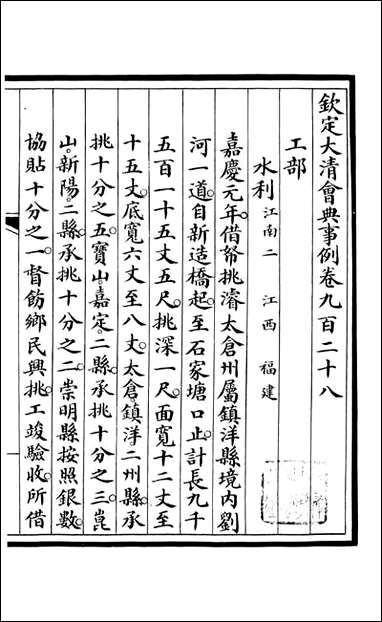 欽定大清會典事例卷九百二十八
工部
水利江南二 江西 福建
嘉慶元年。借帑挑濬太倉州屬鎮洋縣境內劉
河一道。自新造橋起。至石家塘口止。計長九千
五百一十五丈五尺。挑深一尺。面寬十二丈至
十五丈。底寬六丈至八丈。太倉。鎮洋。二州縣。承
挑十分之五。寶山。嘉定。二縣。承挑十分之三。崑
山。新陽。二縣承挑十分之二。崇明縣按照銀數。
協貼十分之一。督飭鄉民興挑。工竣驗收。所借